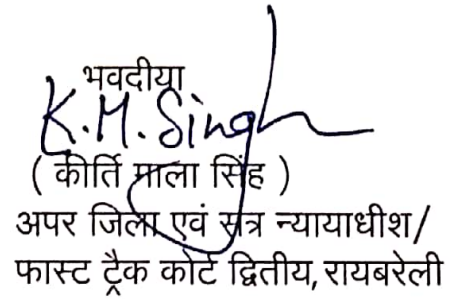 भवदीया
K.M. Singh
( कीर्ति माला सिंह )
अपर जिला एवं सत्र न्यायाधीश/
फास्ट ट्रैक कोर्ट द्वितीय, रायबरेली